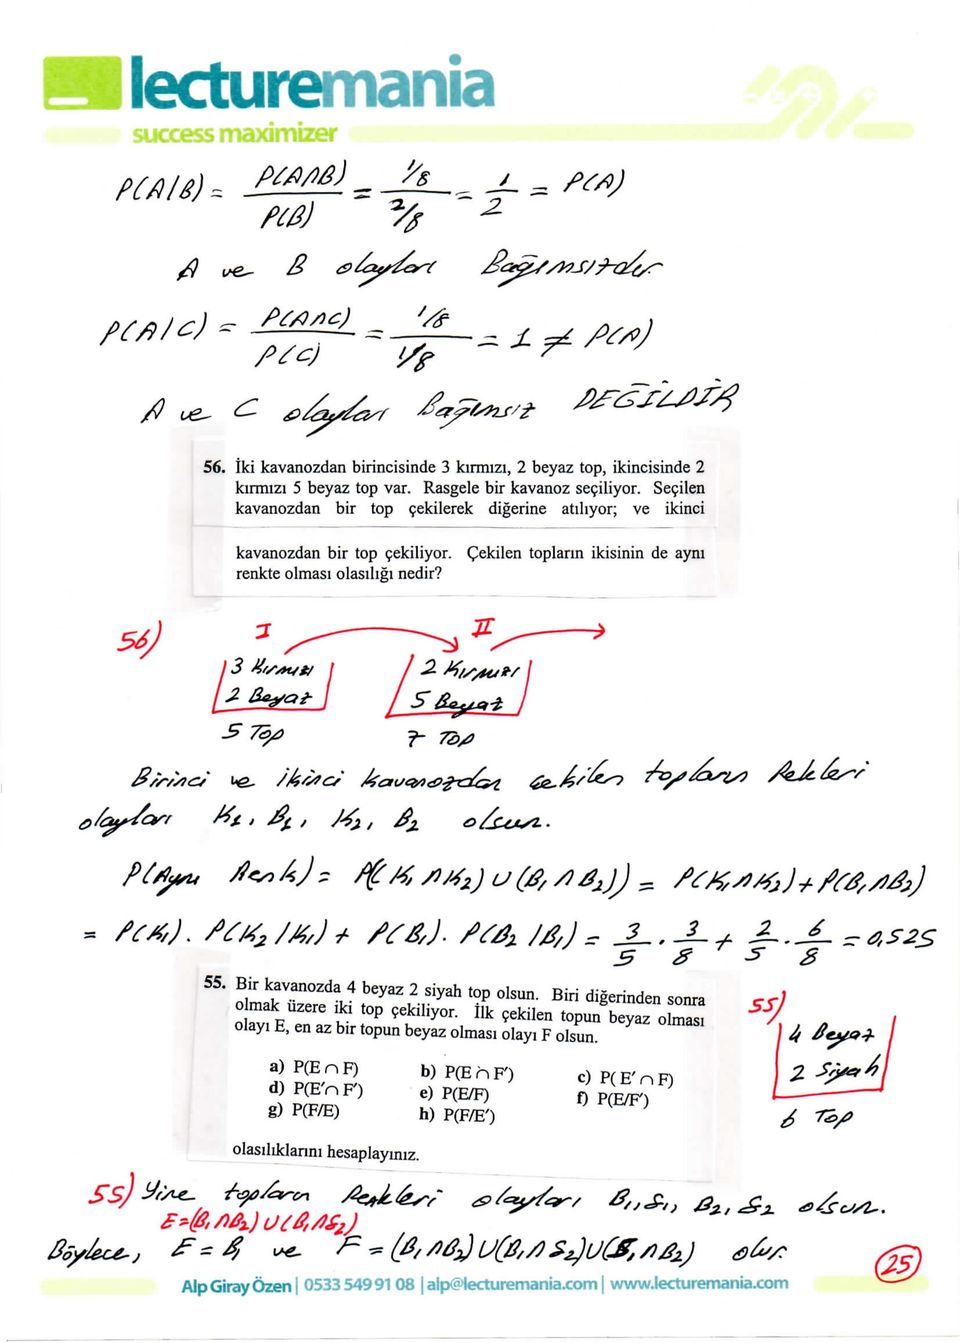 lecturemania
success maximizer
P(A|B) = P(A∩B)/P(B) = (1/8)/(2/8) = 1/2 = P(A)
A ve B olayları Bağımsızdır
P(A|C) = P(A∩C)/P(C) = (1/8)/(1/8) = 1 ≠ P(A)
A ve C olayları Bağımsız DEĞİLDİR
56. İki kavanozdan birincisinde 3 kırmızı, 2 beyaz top, ikincisinde 2
kırmızı 5 beyaz top var. Rasgele bir kavanoz seçiliyor. Seçilen
kavanozdan bir top çekilerek diğerine atılıyor; ve ikinci
kavanozdan bir top çekiliyor. Çekilen topların ikisinin de aynı
renkte olması olasılığı nedir?
56) I II
3 Kırmızı 2 Kırmızı
2 Beyaz 5 Beyaz
5 Top 7 Top
Birinci ve ikinci kavanozdan çekilen topların Rekleri
olayları K₁, B₁, K₂, B₂ olsun.
P(Aynı Renk) = P((K₁∩K₂)∪(B₁∩B₂)) = P(K₁∩K₂)+P(B₁∩B₂)
= P(K₁).P(K₂|K₁) + P(B₁).P(B₂|B₁) = 3/5 . 3/8 + 2/5 . 6/8 = 0,525
55. Bir kavanozda 4 beyaz 2 siyah top olsun. Biri diğerinden sonra
olmak üzere iki top çekiliyor. İlk çekilen topun beyaz olması
olayı E, en az bir topun beyaz olması olayı F olsun.
55)
4 Beyaz
2 Siyah
6 Top
a) P(E∩F) b) P(E∩F') c) P(E'∩F)
d) P(E'∩F') e) P(E/F) f) P(E/F')
g) P(F/E) h) P(F/E')
olasılıklarını hesaplayınız.
55) Yine topların Renkleri olayları B₁, S₁, B₂, S₂ olsun.
E=(B₁∩B₂)∪(B₁∩S₂)
Böylece, E = B₁ ve F = (B₁∩B₂)∪(B₁∩S₂)∪(S₁∩B₂) olur.
25
Alp Giray Özen | 0533 549 91 08 | alp@lecturemania.com | www.lecturemania.com